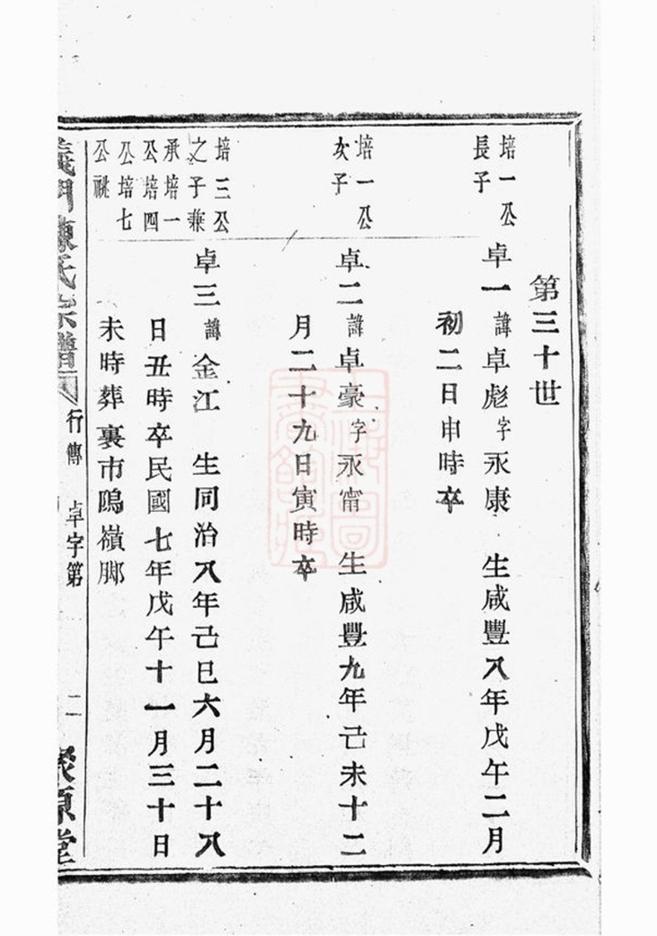 第三十世
培一公
長子
卓一諱卓彪字永康 生咸豐八年戊午二月
初二日申時卒
培一公
次子
卓二諱卓豪字永甯 生咸豐九年己未十二
月二十九日寅時卒
培三公
之子兼
承培一
公培四
公培七
公祧
卓三諱金江 生同治八年己巳六月二十八
日丑時卒民國七年戊午十一月三十日
未時葬裏市隖嶺脚
義門陳氏宗譜 行傳 卓字第 二 聚原堂